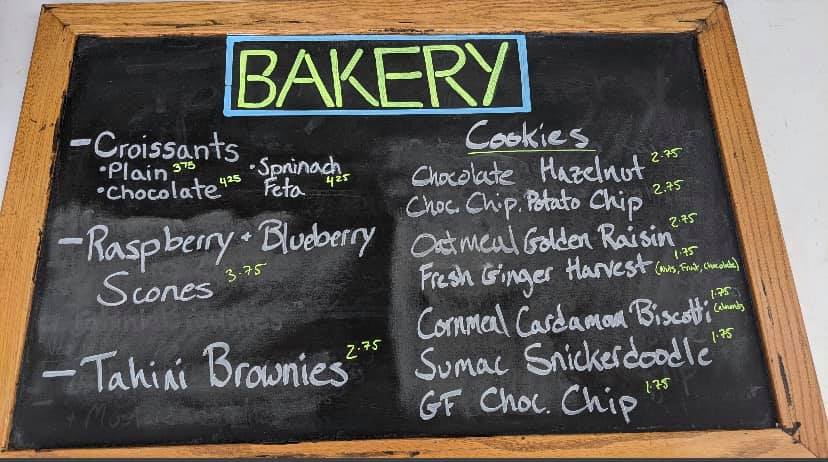 BAKERY
- Croissants
• Plain 375 • Spninach
• Chocolate 425 Feta 425
- Raspberry + Blueberry
Scones 3.75
- Tahini Brownies 2.75
Cookies
Chocolate Hazelnut 2.75
Choc. Chip. Potato Chip 2.75
Oatmeal Golden Raisin 2.75
Fresh Ginger Harvest 1.75 (Nuts, Fruit, Chocolate)
Cornmeal Cardamom Biscotti 1.75 (almonds)
Sumac Snickerdoodle 1.75
GF Choc. Chip 1.75